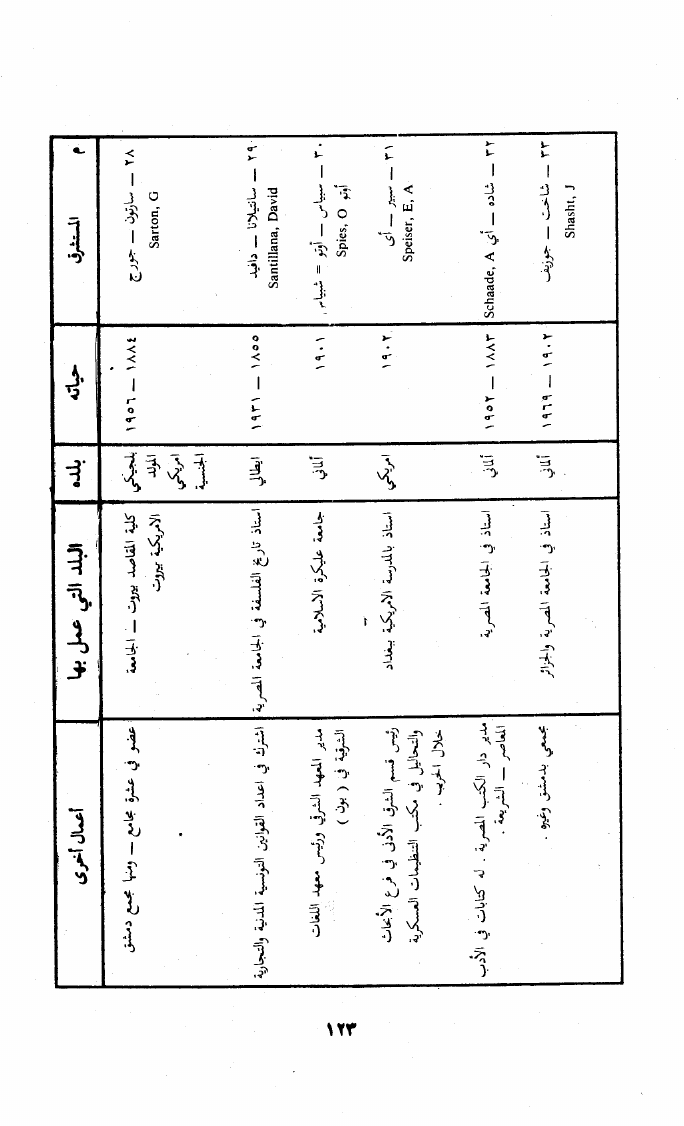 م المستشرق حياته بلده البلد التي عمل بها أعمال أخرى
٢٨ – سارتون – جورج
Sarton, G
١٨٨٤ – ١٩٥٦
بلجيكي
المولد
امريكي
الجنسية
كلية المقاصد بيروت – الجامعة
الامريكية بيروت
عضو في عشرة مجامع – ومنها مجمع دمشق
٢٩ – سانتيلانا – دافيد
Santillana, David
١٨٥٥ – ١٩٣١
ايطالي
استاذ تاريخ الفلسفة في الجامعة المصرية
اشترك في اعداد القوانين التونسية المدنية والتجارية
٣٠ – سبياس – أوتو = شبياس,
أوتو Spies, O
١٩٠١
ألماني
جامعة عليكرة الاسلامية
مدير المعهد الشرقي ورئيس معهد اللغات
الشرقية في ( بون )
٣١ – سبيزر – أى
Speiser, E, A
١٩٠٢
امريكي
استاذ بالمدرسة الامريكية ببغداد
رئيس قسم الشرق الأدنى في فرع الأبحاث
والتحاليل في مكتب التنظيمات العسكرية
خلال الحرب .
٣٢ – شاده – أي Schaade, A
١٨٨٣ – ١٩٥٢
ألماني
استاذ في الجامعة المصرية
مدير دار الكتب المصرية . له كتابات في الأدب
المعاصر – الشريعة .
٣٣ – شاخت – جوزيف
Shasht, J
١٩٠٢ – ١٩٦٩
ألماني
استاذ في الجامعة المصرية والجزائر
مجمعي بدمشق وغيره .
١٢٣